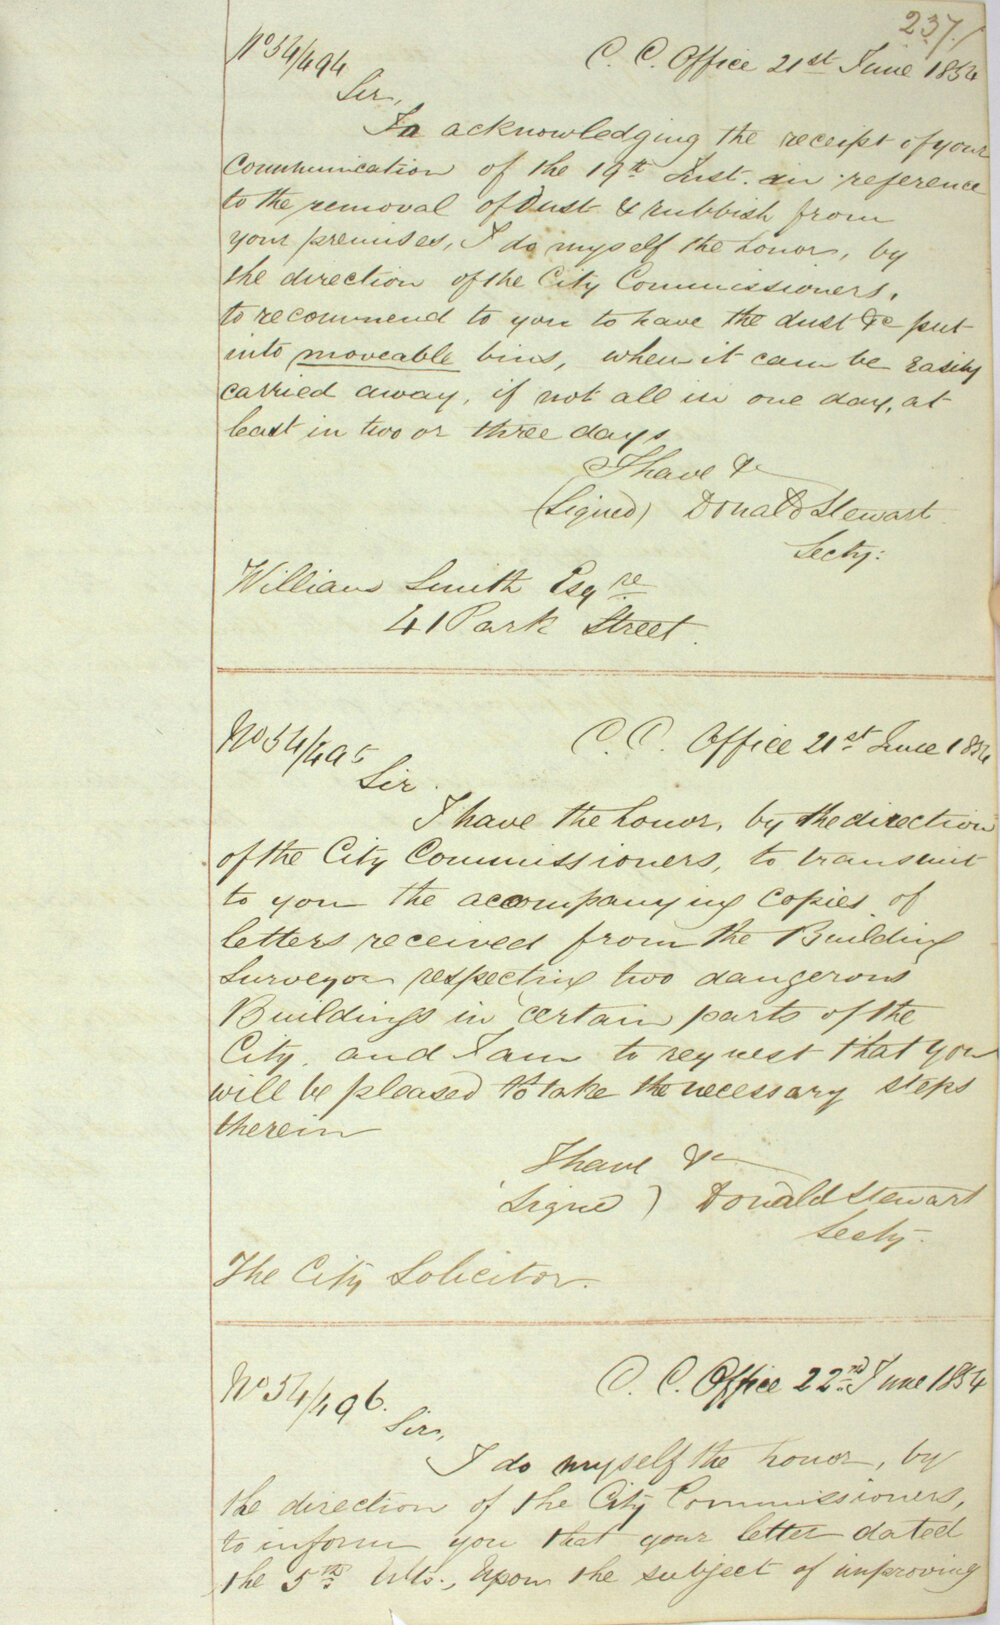 237/
No 54/494
C. C. Office 21st June 1854
Sir,
In acknowledging the receipt of your
communication of the 19th Inst. in reference
to the removal of Dust & rubbish from
your premises, I do myself the honor, by
the direction of the City Commissioners,
to recommend to you to have the dust &c put
into moveable bins, when it can be easily
carried away, if not all in one day, at
least in two or three days
I have &c
(Signed) Donald Stewart
Secty:
William Smith Esqre
41 Park Street.
No 54/495
C. C. Office 21st June 1854
Sir.
I have the honor, by the direction
of the City Commissioners, to transmit
to you the accompanying copies of
letters received from the Building
Surveyor respecting two dangerous
Buildings in certain parts of the
City, and I am to request that you
will be pleased to take the necessary steps
therein
I have &c
(Signed) Donald Stewart
Secty.
The City Solicitor.
No 54/496.
C. C. Office 22nd June 1854
Sir,
I do myself the honor, by
the direction of the City Commissioners,
to inform you that your letter dated
the 5th Ulto., upon the subject of improving